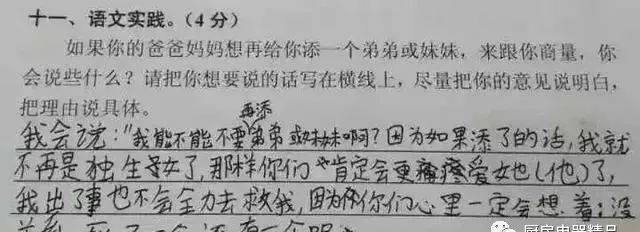 十一、语文实践。(4分)
如果你的爸爸妈妈想再给你添一个弟弟或妹妹，来跟你商量，你
会说些什么？请把你想要说的话写在横线上，尽量把你的意见说明白，
把理由说具体。
再添
我会说：“我能不能不要弟弟或妹妹啊？因为如果添了的话，我就
不再是独生子女了，那样你们肯定会更疼爱她(他)了，
我出了事也不会全力去救我，因为你们心里一定会想着：没